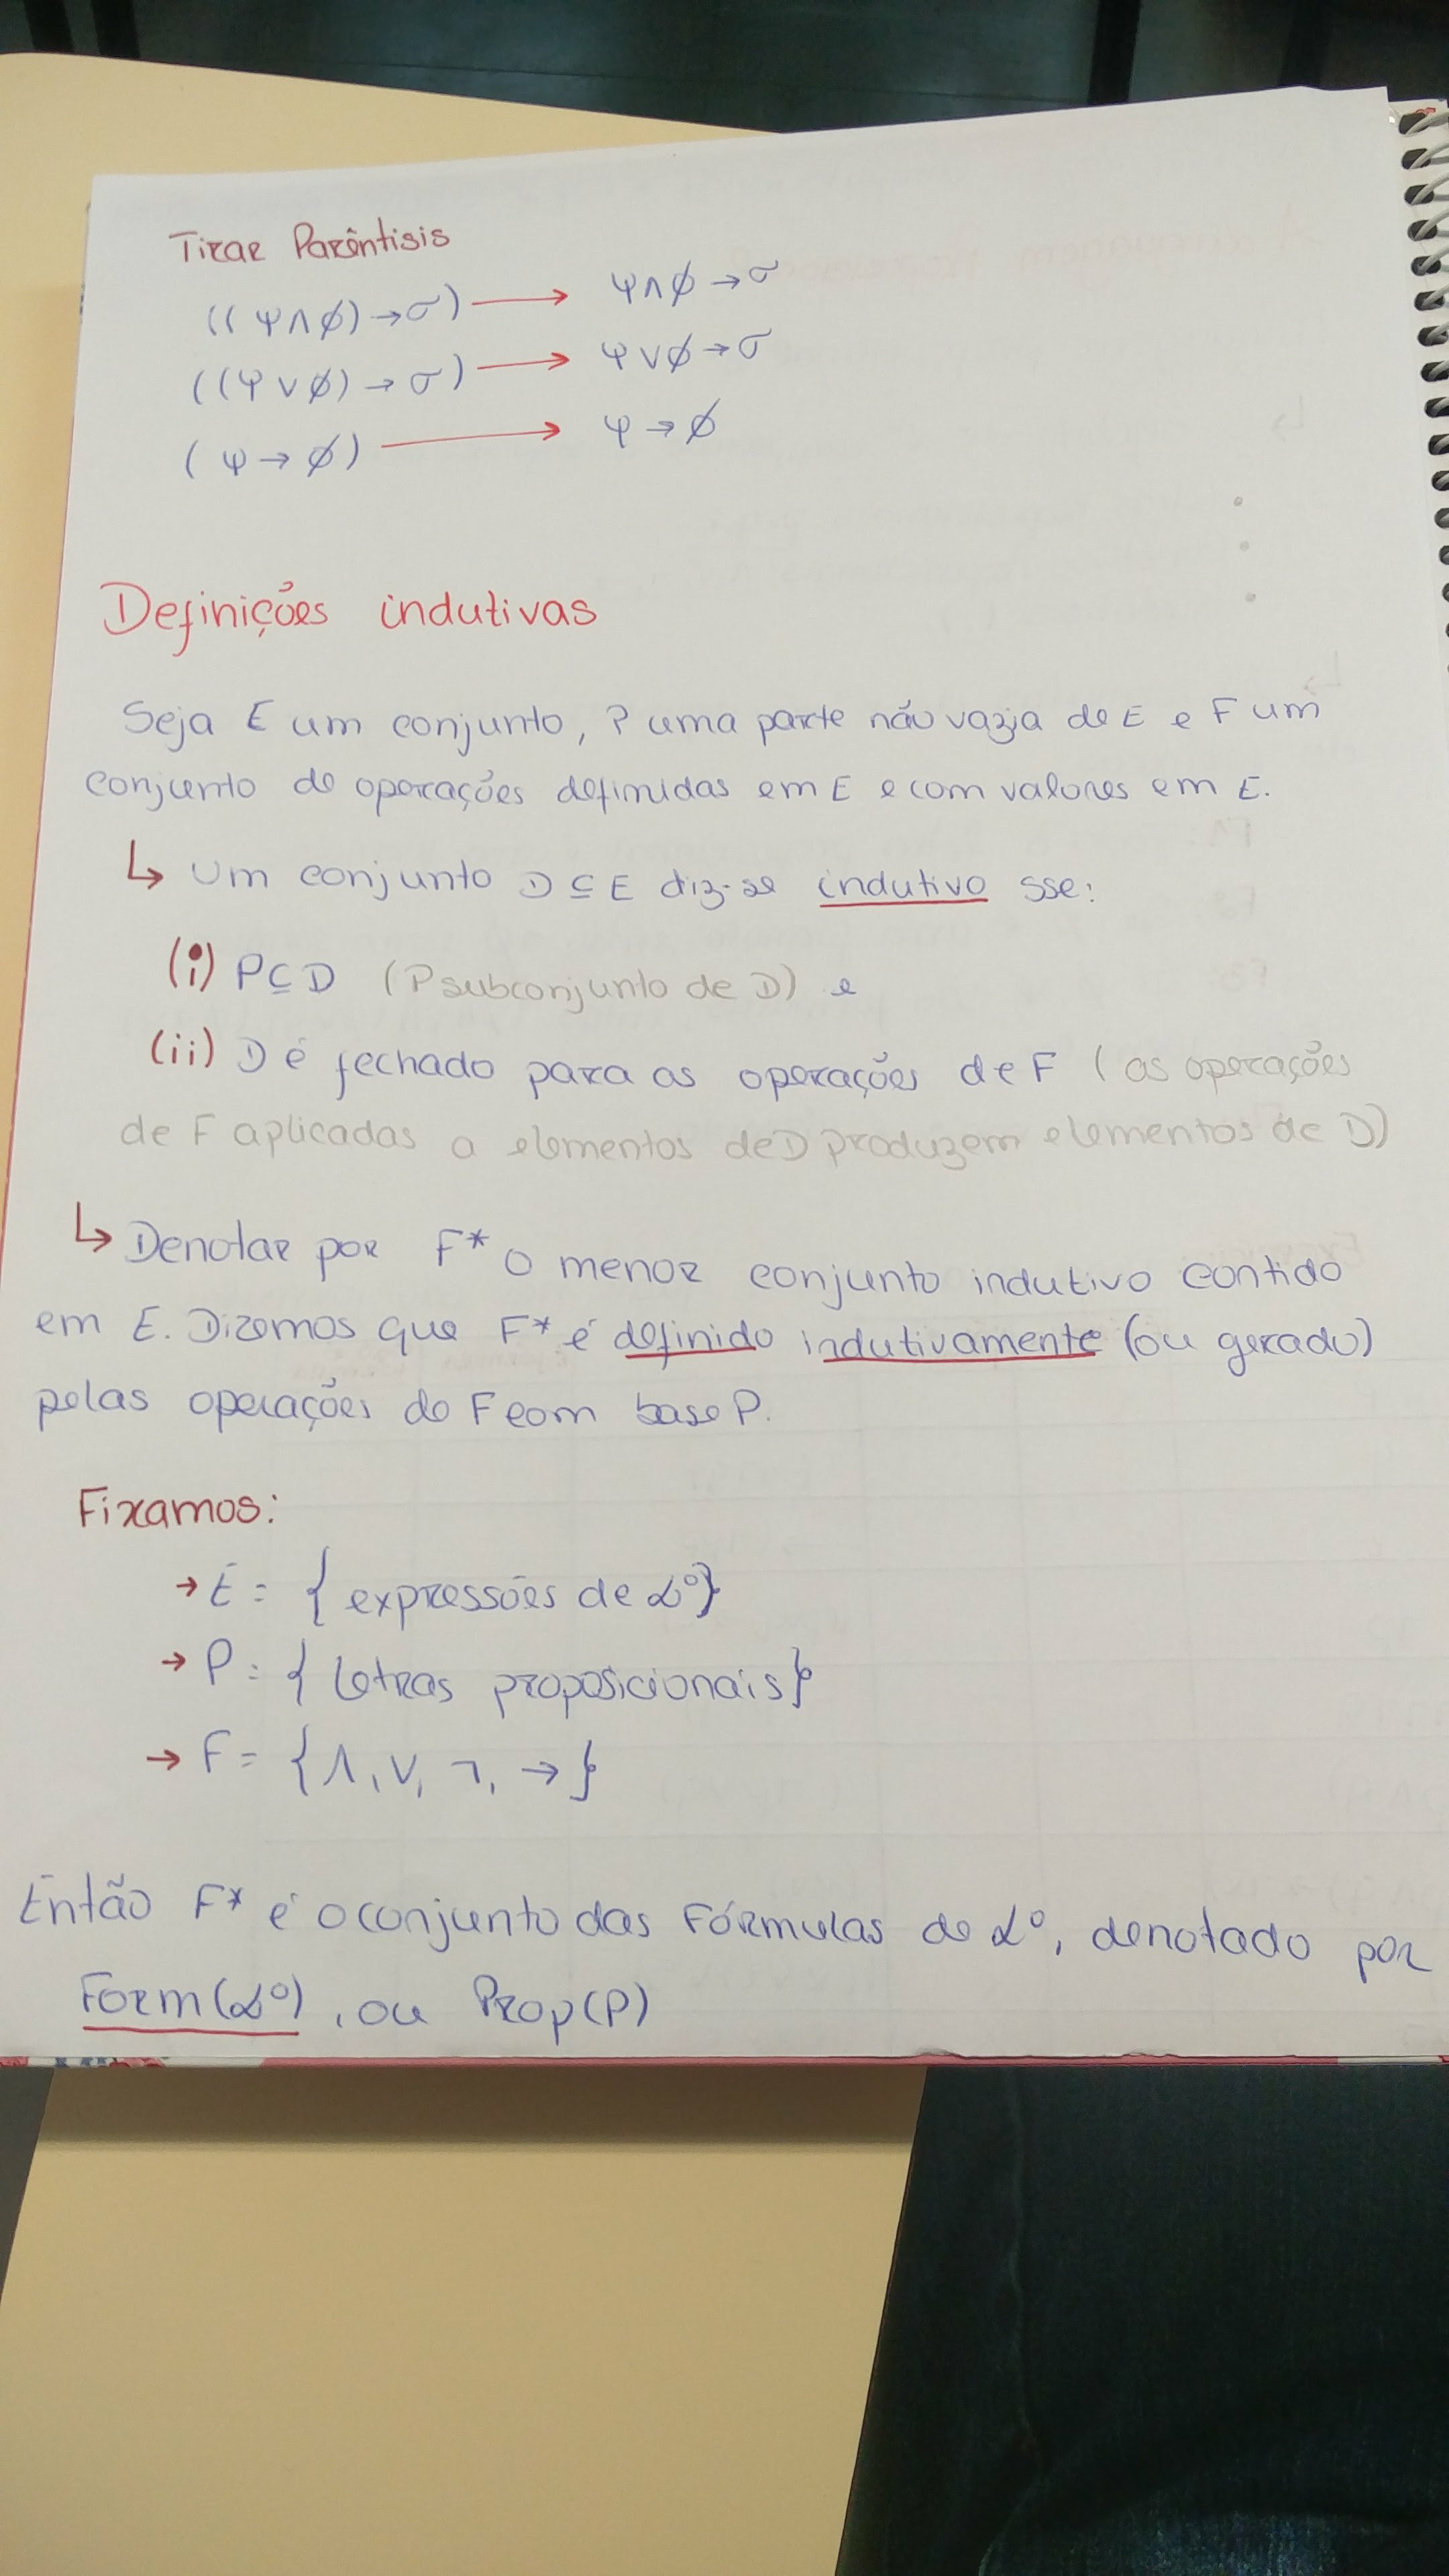 Tirar Parêntisis
((ψ∧ϕ)→σ) ⟶ ψ∧ϕ→σ
((ψ∨ϕ)→σ) ⟶ ψ∨ϕ→σ
(ψ→ϕ) ⟶ ψ→ϕ
Definições indutivas
Seja E um conjunto, P uma parte não vazia de E e F um
conjunto de operações definidas em E e com valores em E.
↳ Um conjunto D⊆E diz-se indutivo sse:
(i) P⊆D (P subconjunto de D) e
(ii) D é fechado para as operações de F (as operações
de F aplicadas a elementos de D produzem elementos de D)
↳ Denotar por F* o menor conjunto indutivo contido
em E. Dizemos que F* é definido indutivamente (ou gerado)
pelas operações de F com base P.
Fixamos:
→ E = {expressões de ℒ⁰}
→ P = {letras proposicionais}
→ F = {∧, ∨, ¬, →}
Então F* é o conjunto das Fórmulas de ℒ⁰, denotado por
Form(ℒ⁰), ou Prop(P)